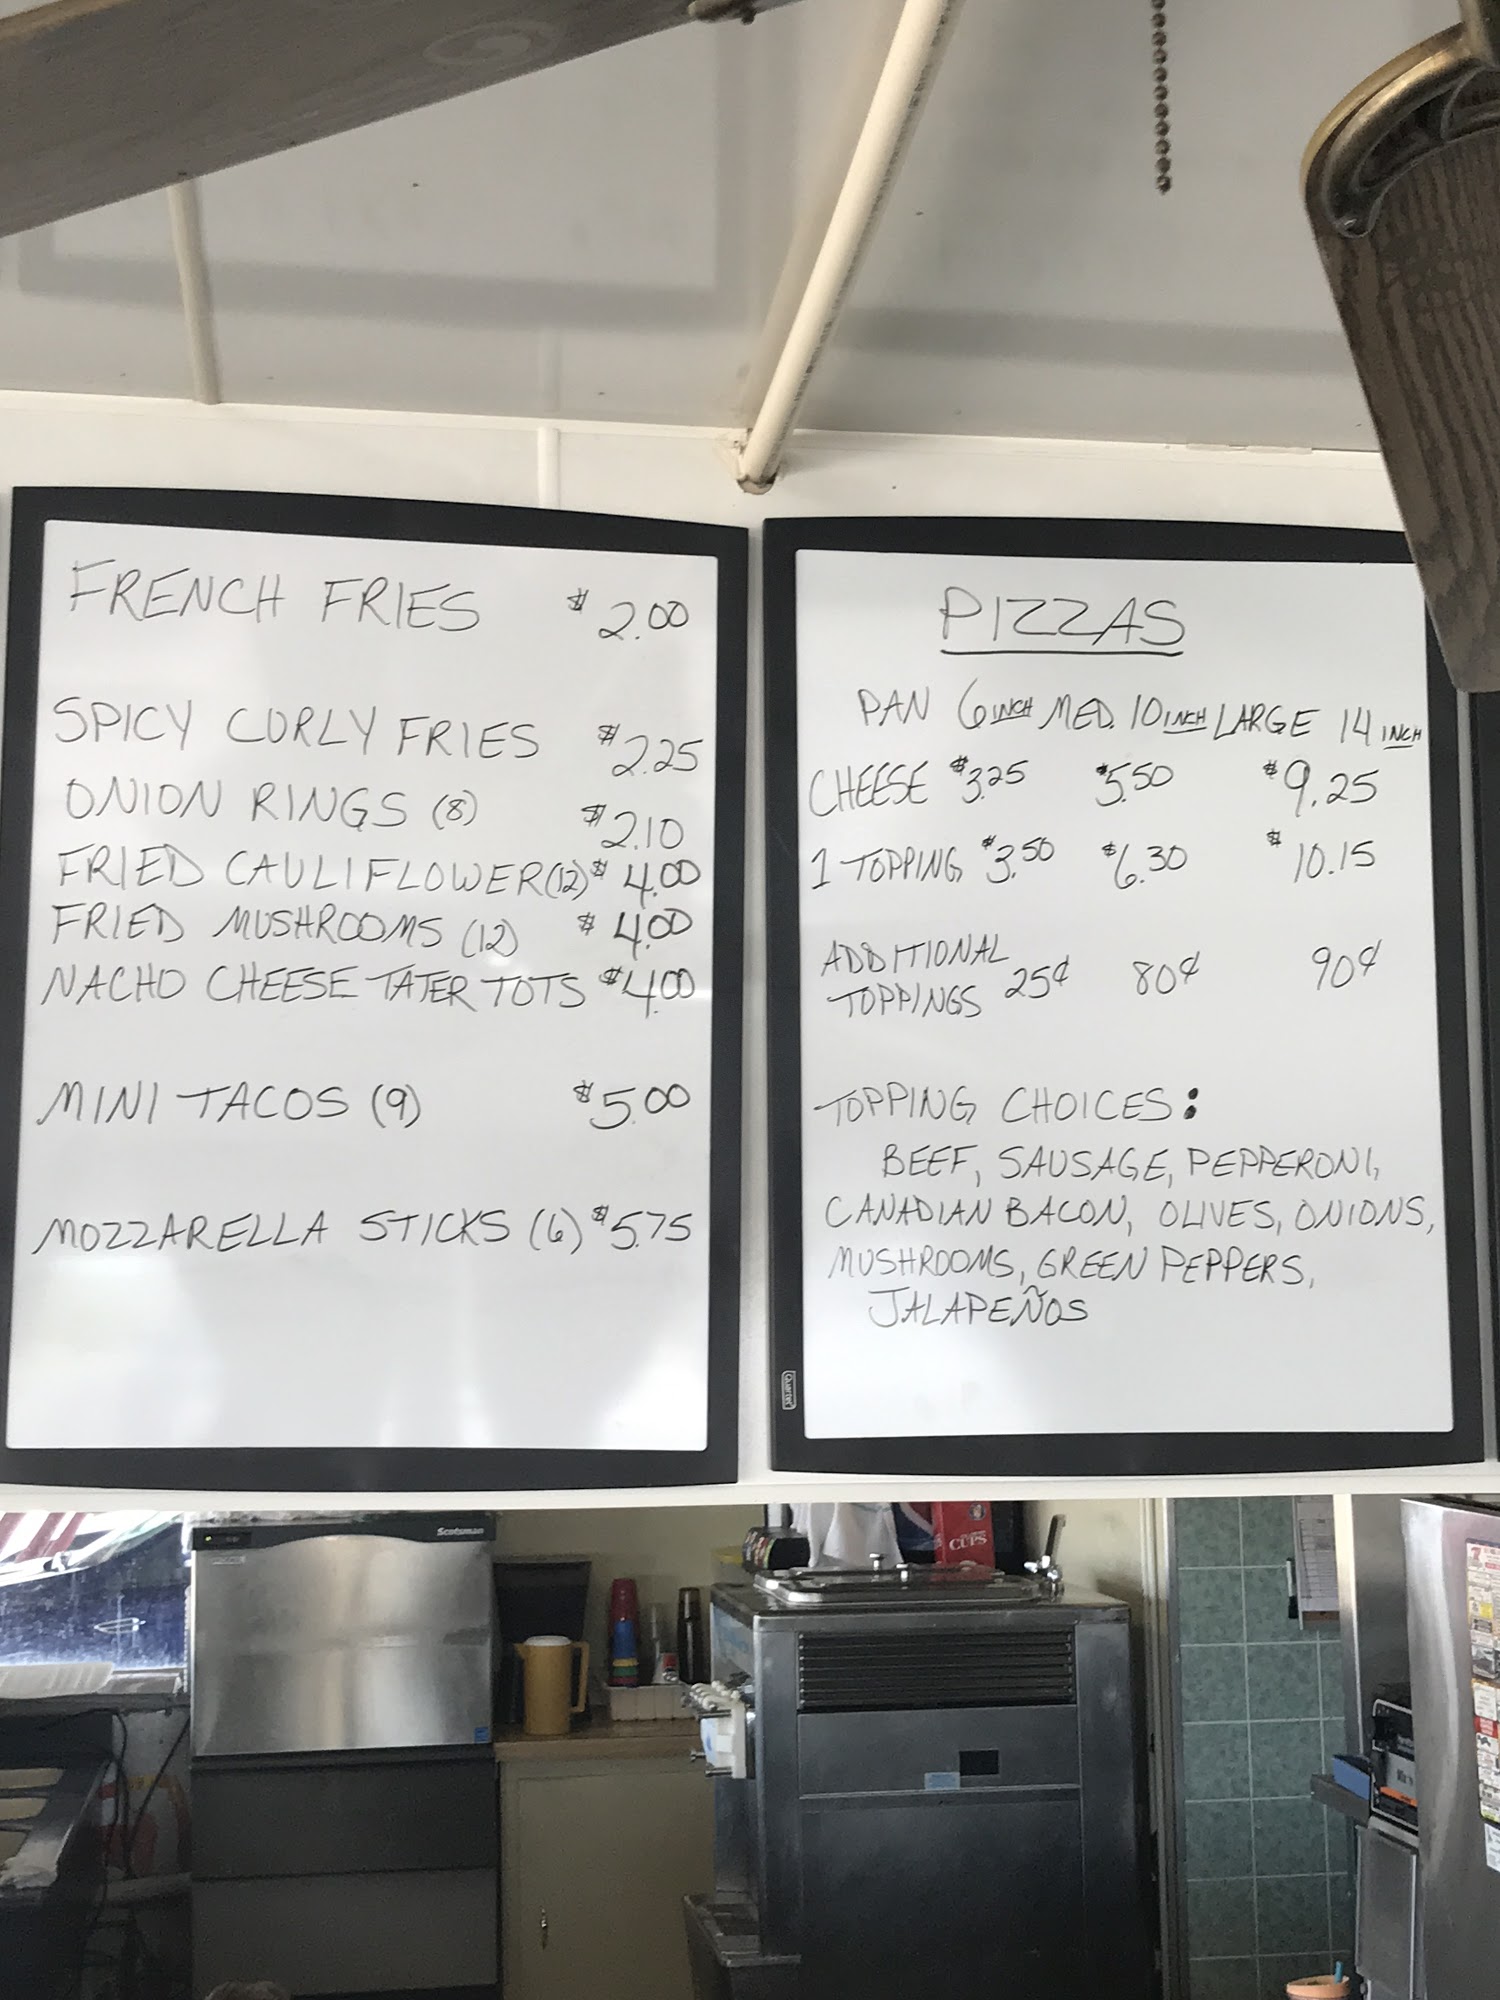 FRENCH FRIES $2.00
SPICY CURLY FRIES $2.25
ONION RINGS (8) $2.10
FRIED CAULIFLOWER (12) $4.00
FRIED MUSHROOMS (12) $4.00
NACHO CHEESE TATER TOTS $4.00
MINI TACOS (9) $5.00
MOZZARELLA STICKS (6) $5.75
PIZZAS
PAN 6 INCH MED. 10 INCH LARGE 14 INCH
CHEESE $3.25 $5.50 $9.25
1 TOPPING $3.50 $6.30 $10.15
ADDITIONAL
TOPPINGS 25¢ 80¢ 90¢
TOPPING CHOICES:
BEEF, SAUSAGE, PEPPERONI,
CANADIAN BACON, OLIVES, ONIONS,
MUSHROOMS, GREEN PEPPERS,
JALAPEÑOS
Quartet
Scotsman
CUPS